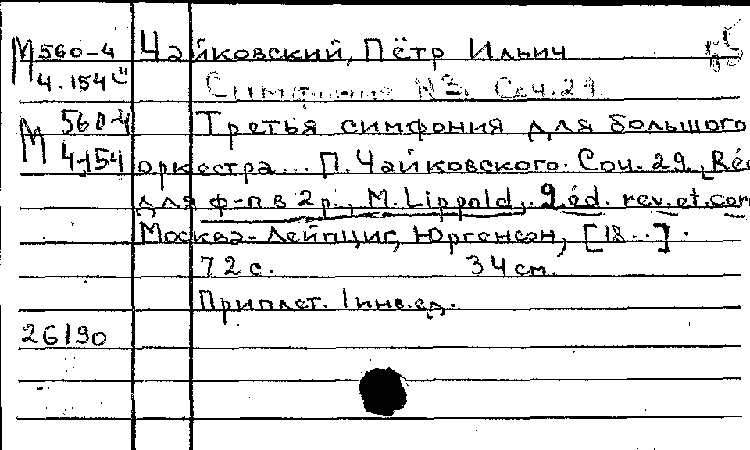 М 560-4 Чайковский, Пётр Ильич
4.154 Симфония №3. Соч. 29
М 560-4 Третья симфония для большого
4-154 оркестра... П. Чайковского. Соч. 29. [Réd
для ф-п. в 2 р., M. Lippold, 9 éd. rev. et cor
Москва-Лейпциг, Юргенсон, [18..].
72 с. 34 см.
Приплет. 1 инв. ед.
26190